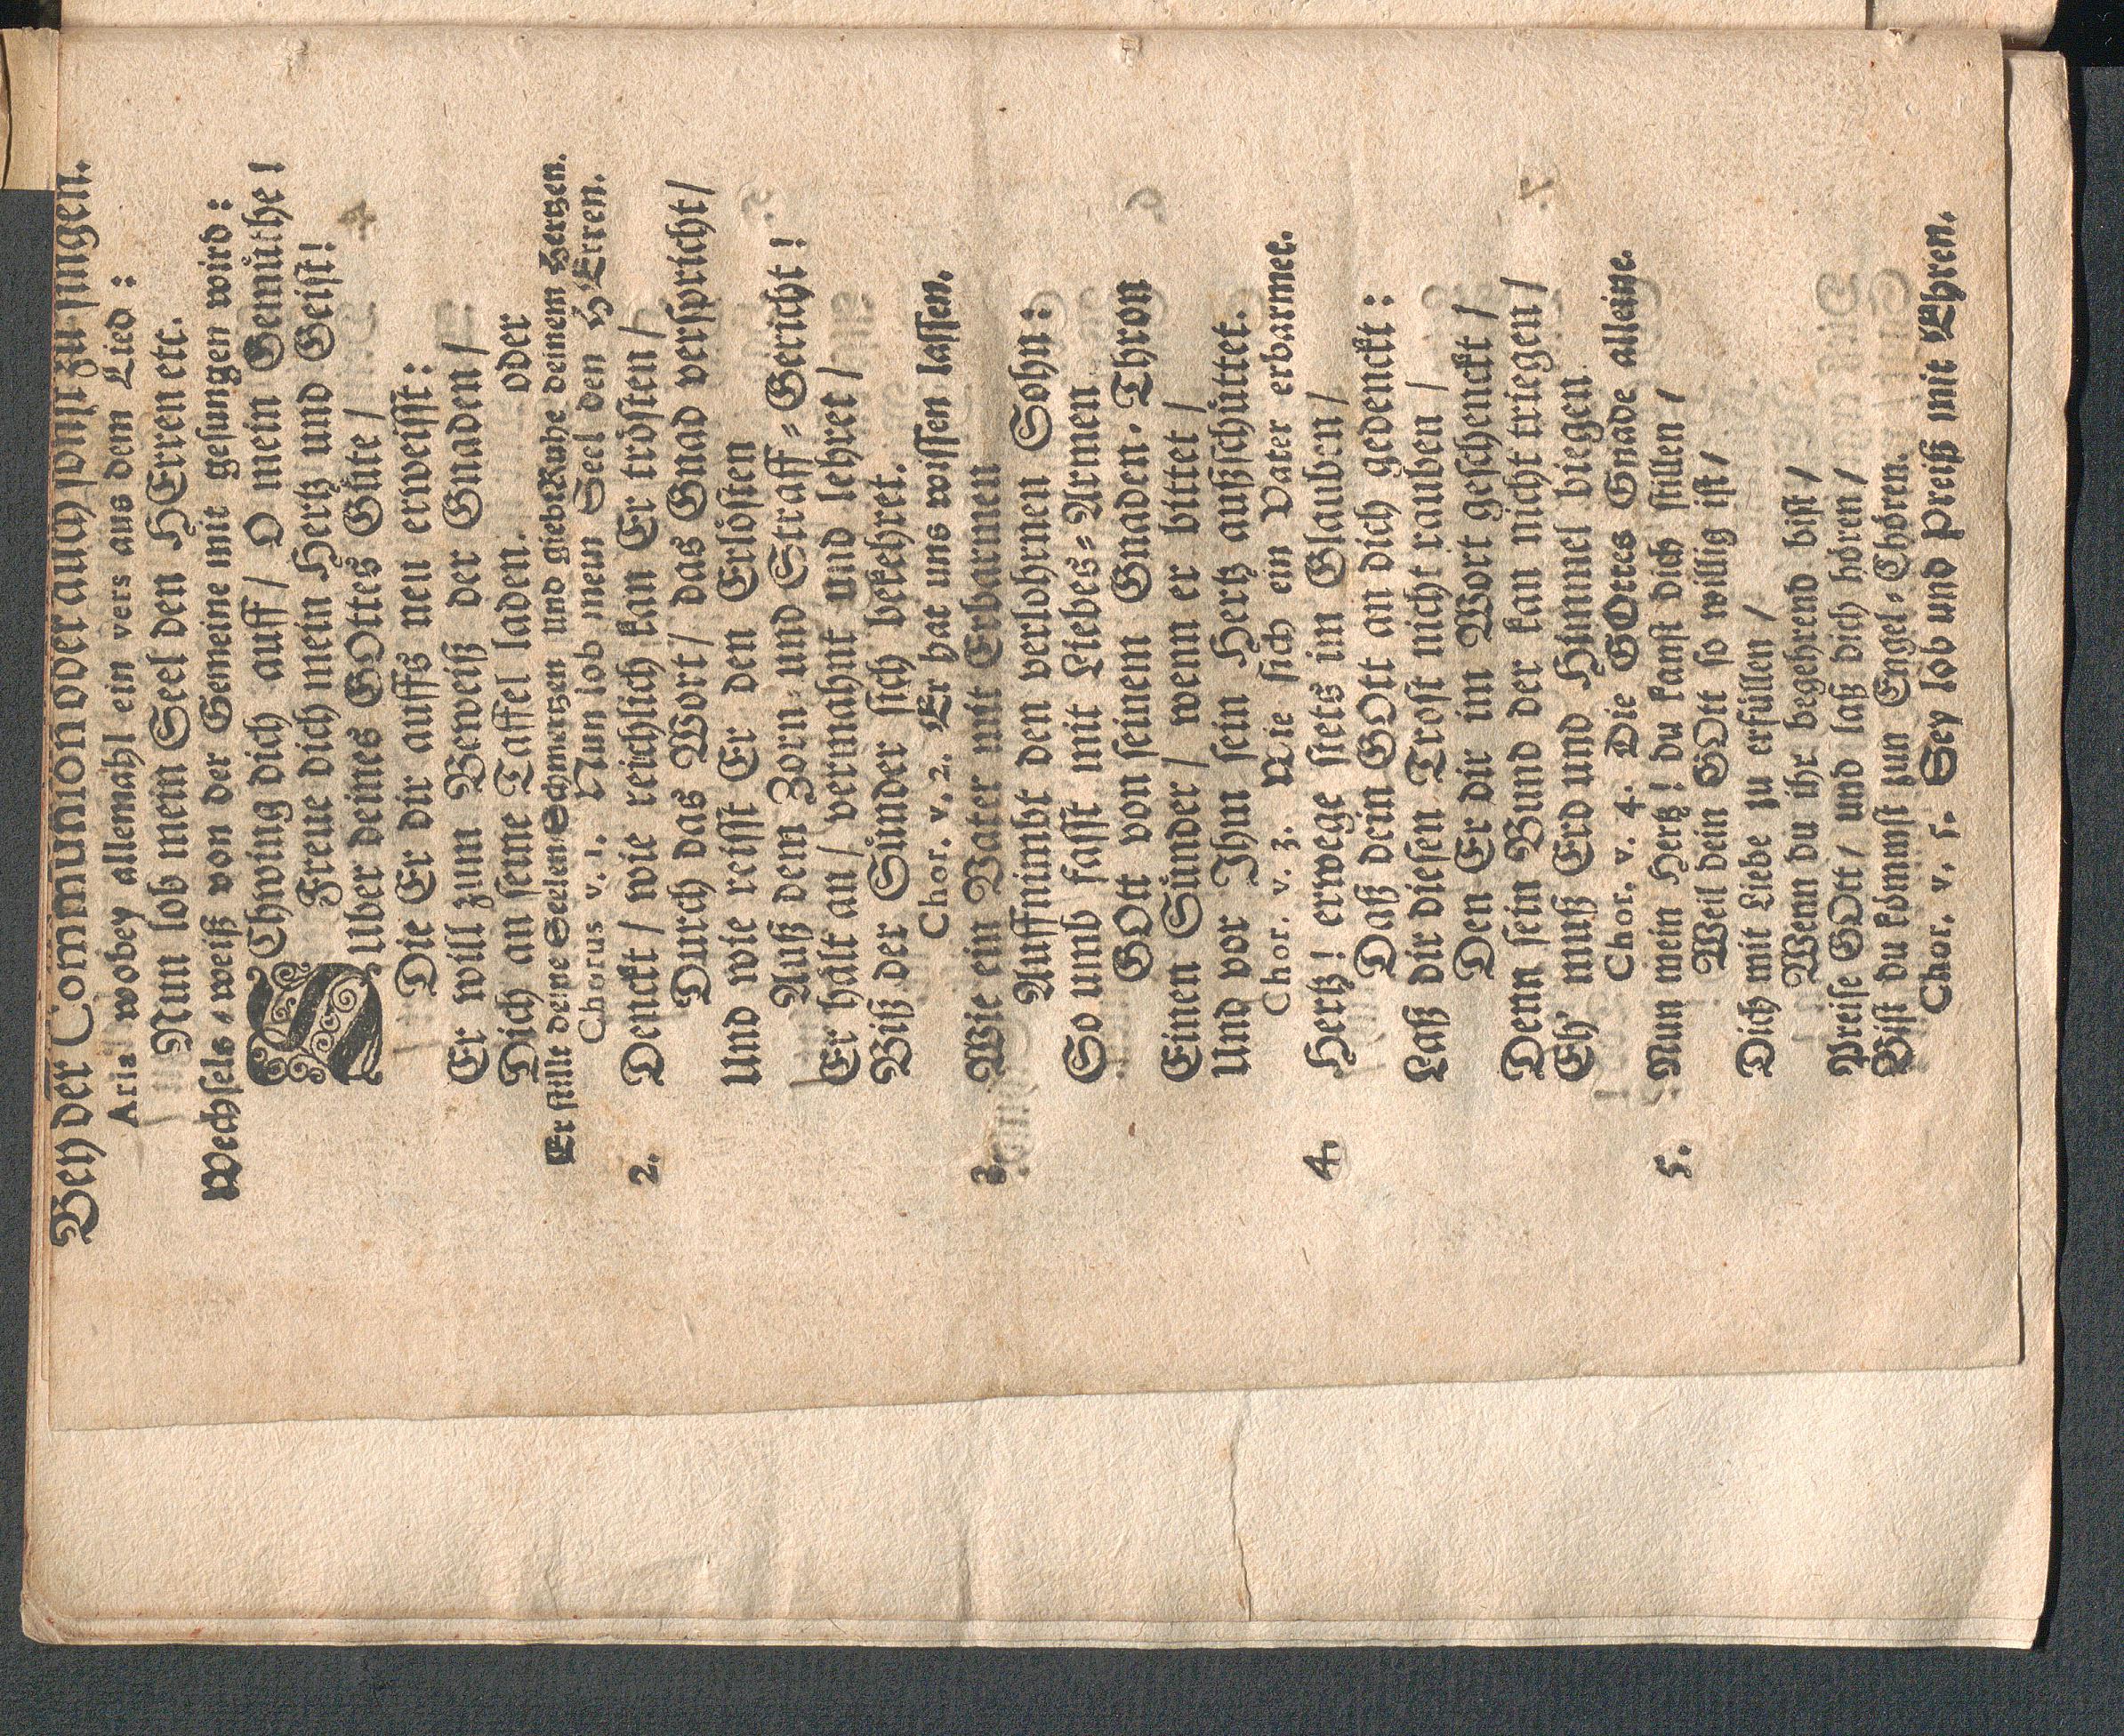 Bey der Com̃union oder auch sonst zu singen.
Aria wobey allemahl ein vers aus dem Lied:
Nun lob mein Seel den HErren etc.
Wechsels-weiß von der Gemeine mit gesungen wird:
SChwing dich auff/ O mein Gemüthe!
Freue dich mein Hertz und Geist!
Uber deines GOttes Güte/
Die Er dir auffs neu erweisst:
Er will zum Beweiß der Gnaden/
Dich an seine Taffel laden. oder
Er stillt deine Seelen Schmertzen und giebt Ruhe deinem Hertzen.
Chorus v. 1. Nun lob mein Seel den HErren.
2. Denckt/ wie reichlich kan Er trösten/
Durch das Wort/ das Gnad verspricht/
Und wie reisst Er den Erlösten
Auß dem Zorn- und Straff-Gericht!
Er hält an/ vermahnt und lehret/
Biß der Sünder sich bekehret.
Chor. v. 2. Er hat uns wissen lassen.
3. Wie ein Vater mit Erbarmen
Auffnimbt den verlohrnen Sohn:
So umb fasst mit Liebes-Armen
GOtt von seinem Gnaden-Thron
Einen Sünder/ wenn er bittet/
Und vor Ihm sein Hertz außschüttet.
Chor. v. 3. Wie sich ein Vater erbarmet.
4. Hertz! erwege stets im Glauben/
Daß dein GOtt an dich gedenckt:
Laß dir diesen Trost nicht rauben/
Den Er dir im Wort geschenckt/
Denn sein Bund der kan nicht triegen/
Eh' muß Erd und Himmel biegen.
Chor. v. 4. Die GOttes Gnade alleine.
5. Nun mein Hertz! du kanst dich stillen/
Weil dein GOtt so willig ist/
Dich mit Liebe zu erfüllen/
Wenn du ihr begehrend bist/
Preise GOtt/ und laß dich hören/
Bist du kom̃st zun Engel-Chören.
Chor. v. 5. Sey lob und Preiß mit Ehren.